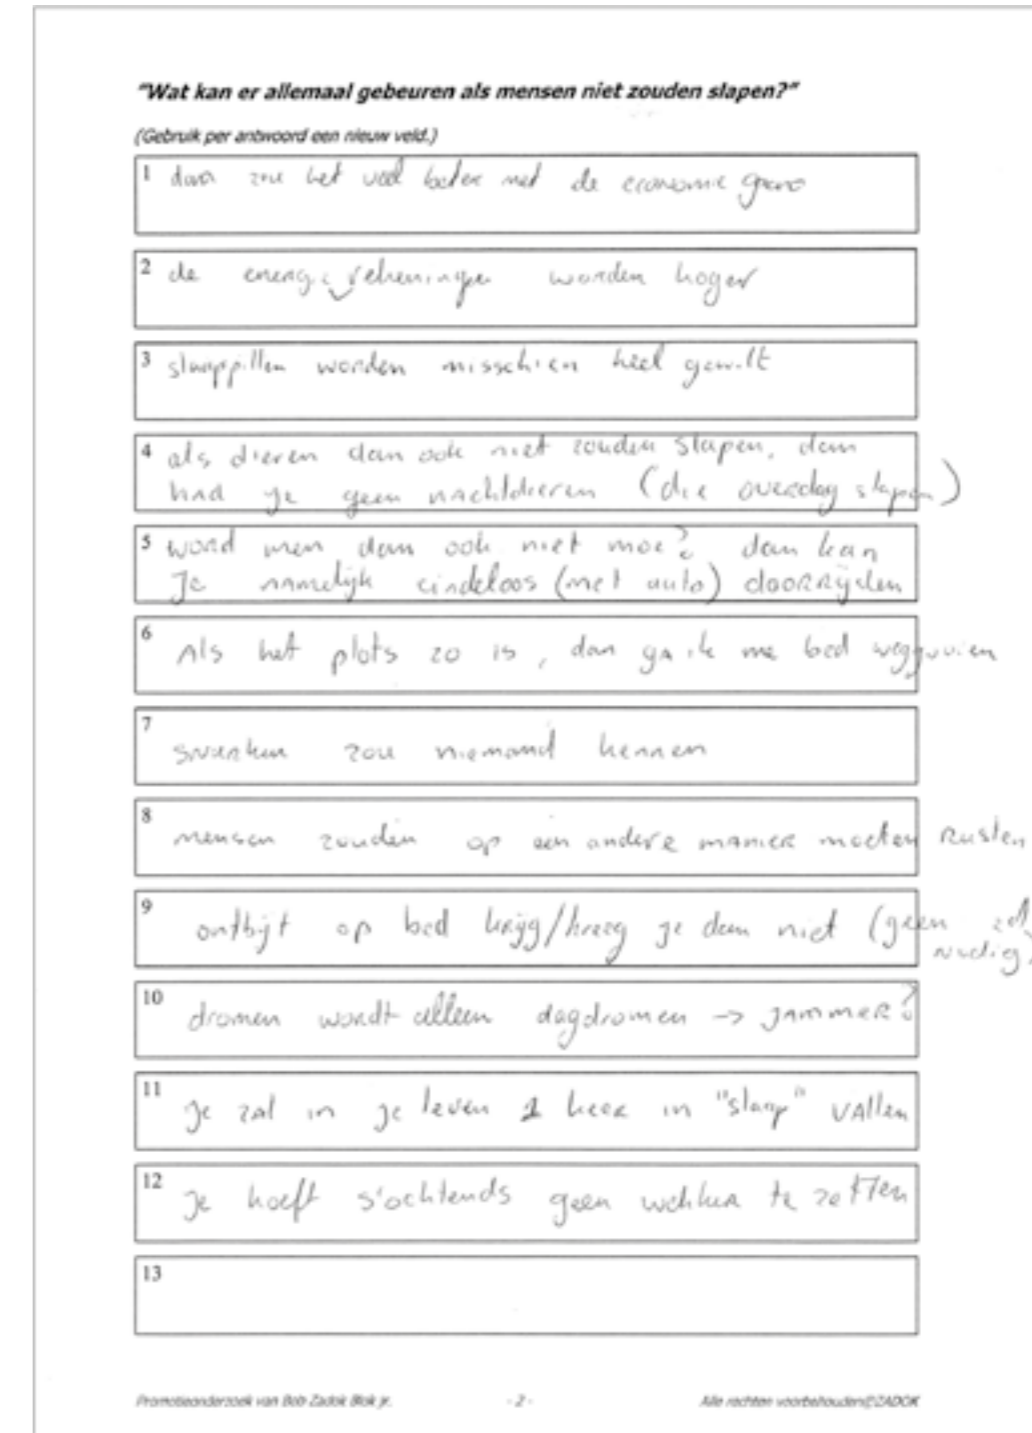 "Wat kan er allemaal gebeuren als mensen niet zouden slapen?"
(Gebruik per antwoord een nieuw veld.)
1 dan zou het veel beter met de economie gaan
2 de energie rekeningen worden hoger
3 slaappillen worden misschien heel gewilt
4 als dieren dan ook niet zouden slapen, dan
had je geen nachtdieren (die overdag slapen)
5 word men dan ook niet moe? dan kan
je namelijk eindeloos (met auto) doorrijden
6 Als het plots zo is, dan ga ik me bed weggooien
7 snurken zou niemand kennen
8 mensen zouden op een andere manier moeten rusten
9 ontbijt op bed krijg/kreeg je dan niet (geen
nodig)
10 dromen wordt alleen dagdromen -> jammer?
11 je zal in je leven 1 keer in "slaap" vallen
12 je hoeft s'ochtends geen wekker te zetten
13
Promotieonderzoek van Bob Zadok Blok jr. - 2 - Alle rechten voorbehouden©ZADOK